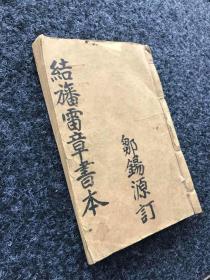 結旛雷章書本
鄒錫源訂